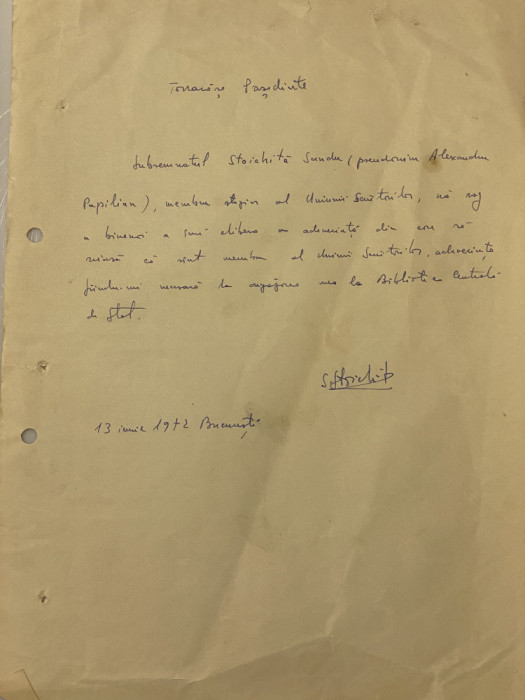 Tovarășe Președinte
Subsemnatul Stoichiță Sandu (pseudonim Alexandru
Papilian), membru stagiar al Uniunii Scriitorilor, vă rog
a binevoi a-mi elibera o adeverință din care să
reiasă că sunt membru al Uniunii Scriitorilor, adeverința
fiindu-mi necesară la angajarea mea la Biblioteca Centrală
de Stat.
SStoichiță
13 iunie 1972 București